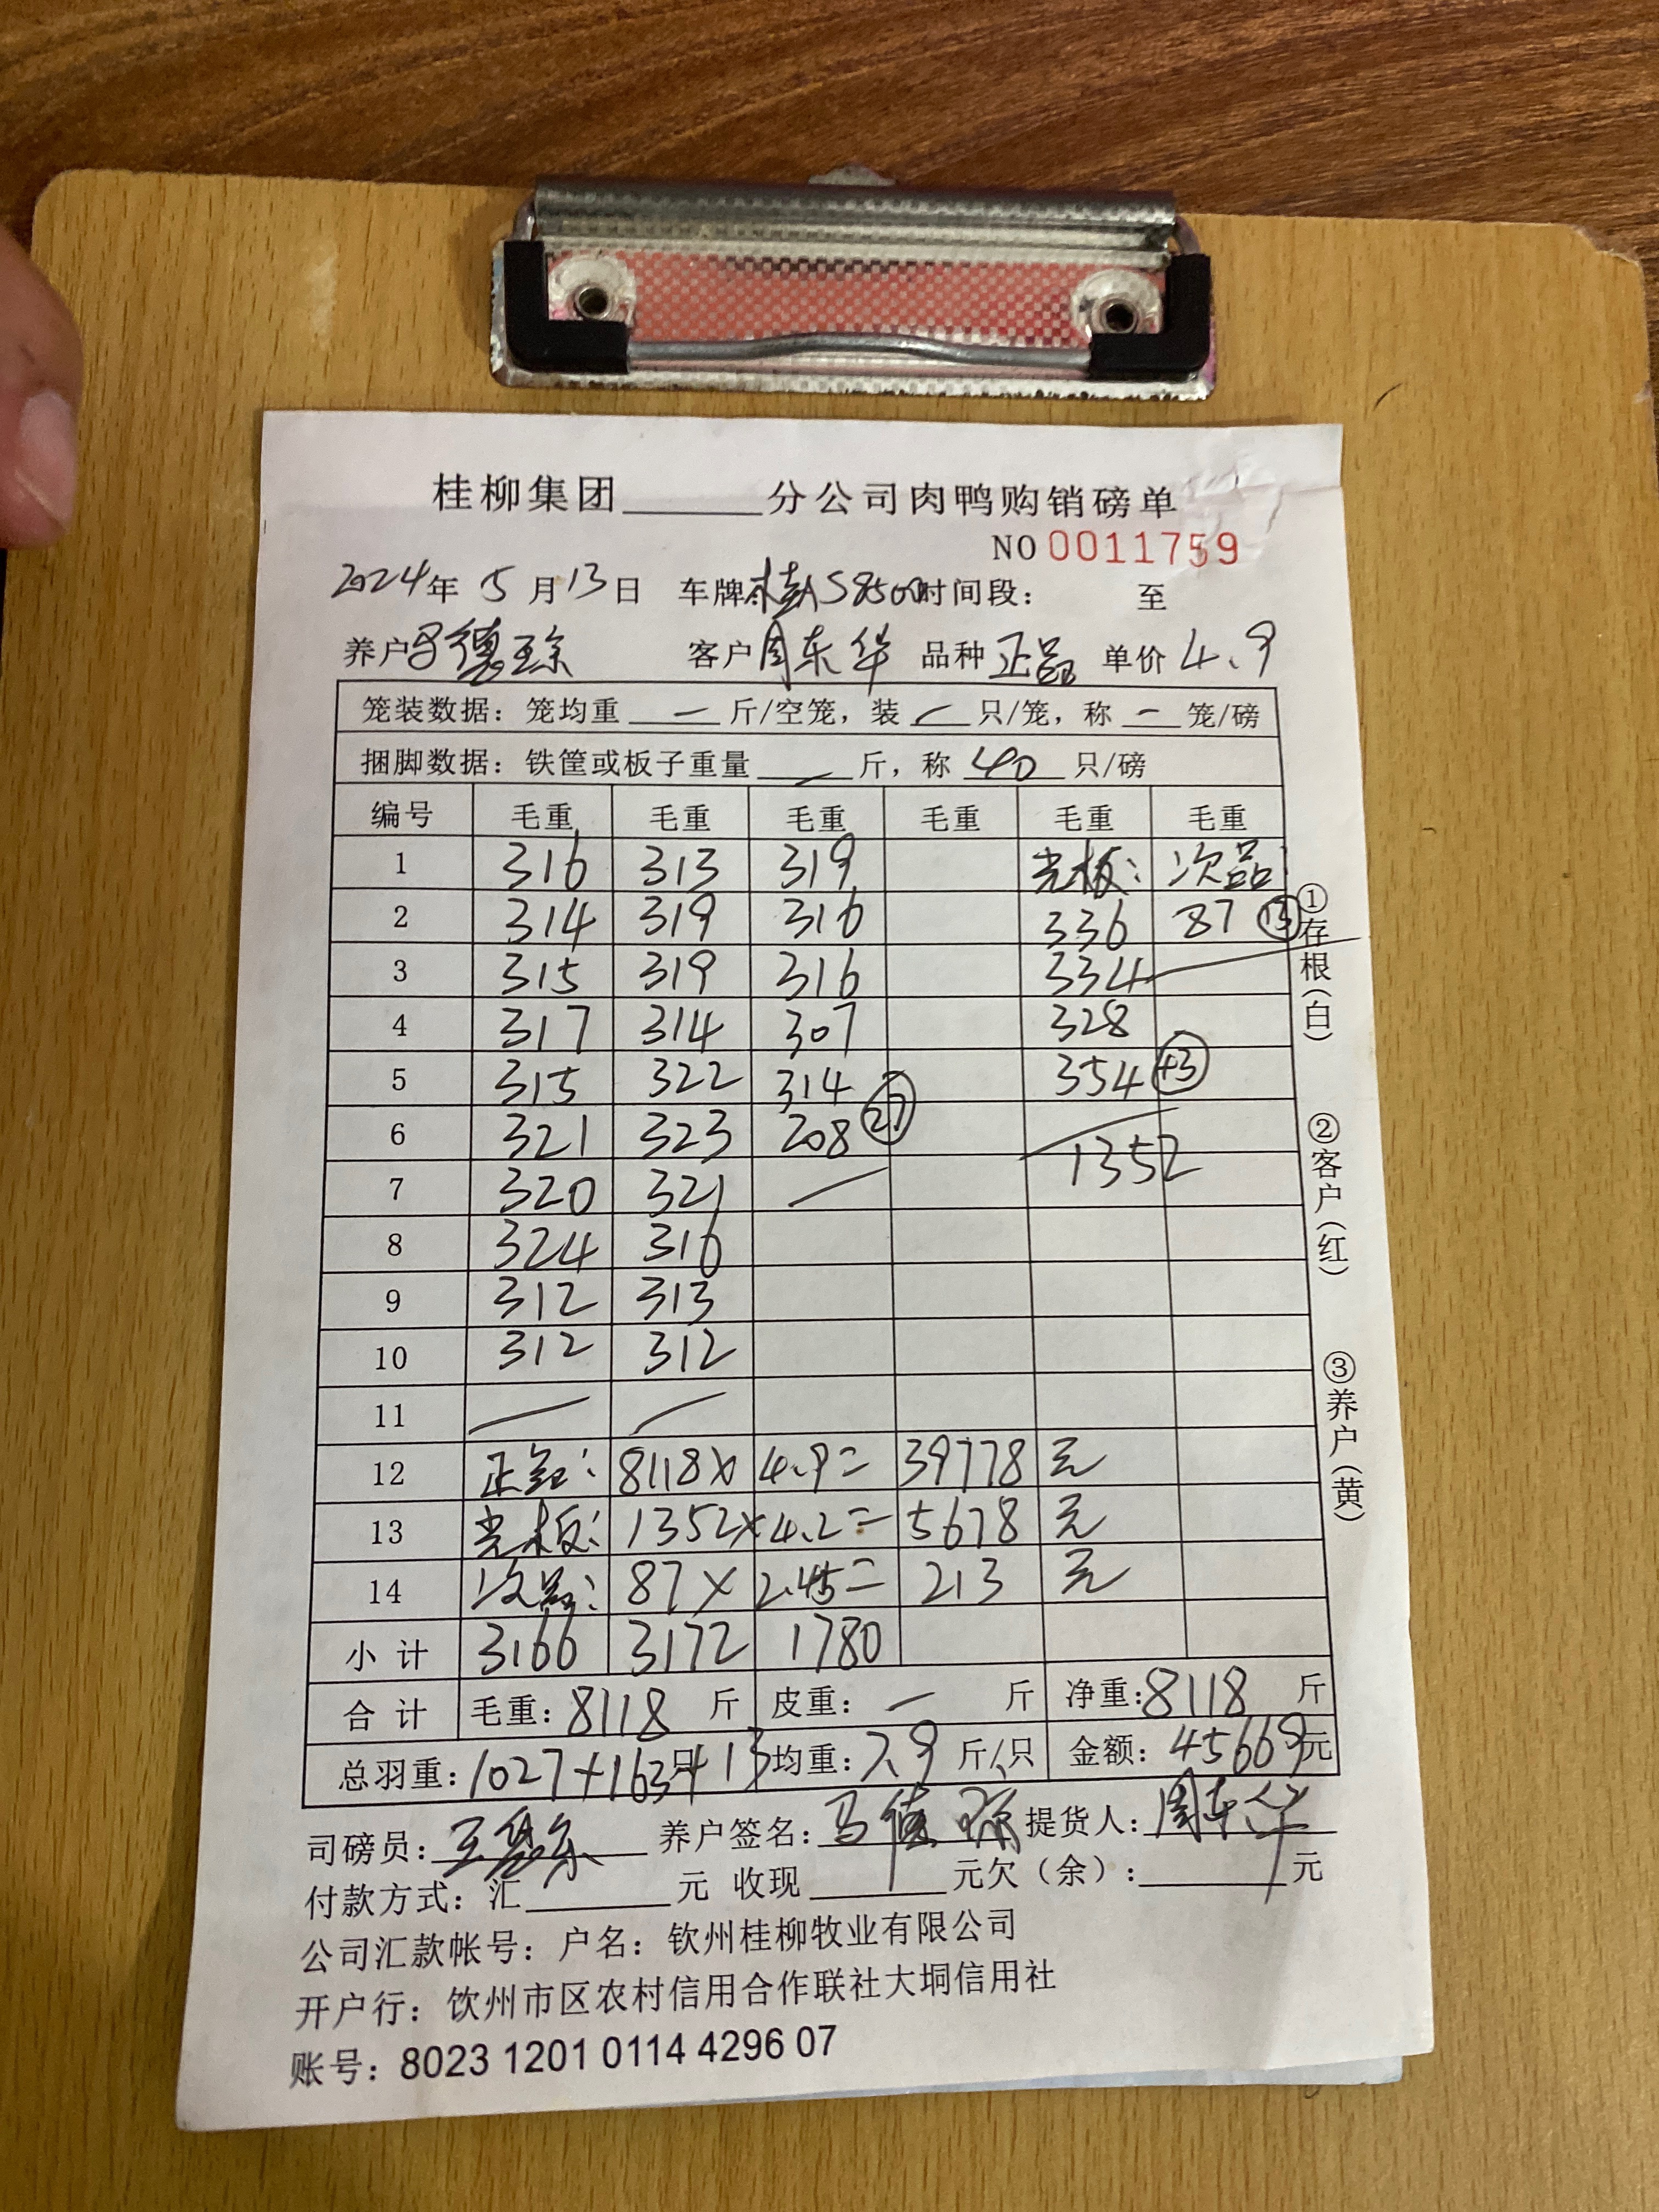 桂柳集团______分公司肉鸭购销磅单
NO 0011759
2024年 5月13日 车牌:桂AS8500 时间段: 至
养户 马德琼 客户 周东华 品种 正品 单价 4.9
笼装数据:笼均重 — 斤/空笼,装 — 只/笼,称 — 笼/磅
捆脚数据:铁筐或板子重量 — 斤,称 40 只/磅
编号 毛重 毛重 毛重 毛重 毛重 毛重
1 316 313 319 光板: 次品:
2 314 319 316 336 87 ⑬
3 315 319 316 334
4 317 314 307 328
5 315 322 314 354 +3
6 321 323 208 27 1352
7 320 321 —
8 324 316
9 312 313
10 312 312
11 — —
12 正品: 8118× 4.9= 39778 元
13 光板: 1352×4.2= 5678 元
14 次品: 87× 2.45= 213 元
小计 3166 3172 1780
合计 毛重:8118 斤 皮重: — 斤 净重:8118 斤
总羽重:1027+163只+13 均重:7.9 斤/只 金额:45669元
司磅员: 养户签名:马德琼 提货人:周东华
付款方式:汇______元 收现______元欠(余):______元
公司汇款帐号:户名:钦州桂柳牧业有限公司
开户行:钦州市区农村信用合作联社大垌信用社
账号:8023 1201 0114 4296 07
①存根(白)
②客户(红)
③养户(黄)